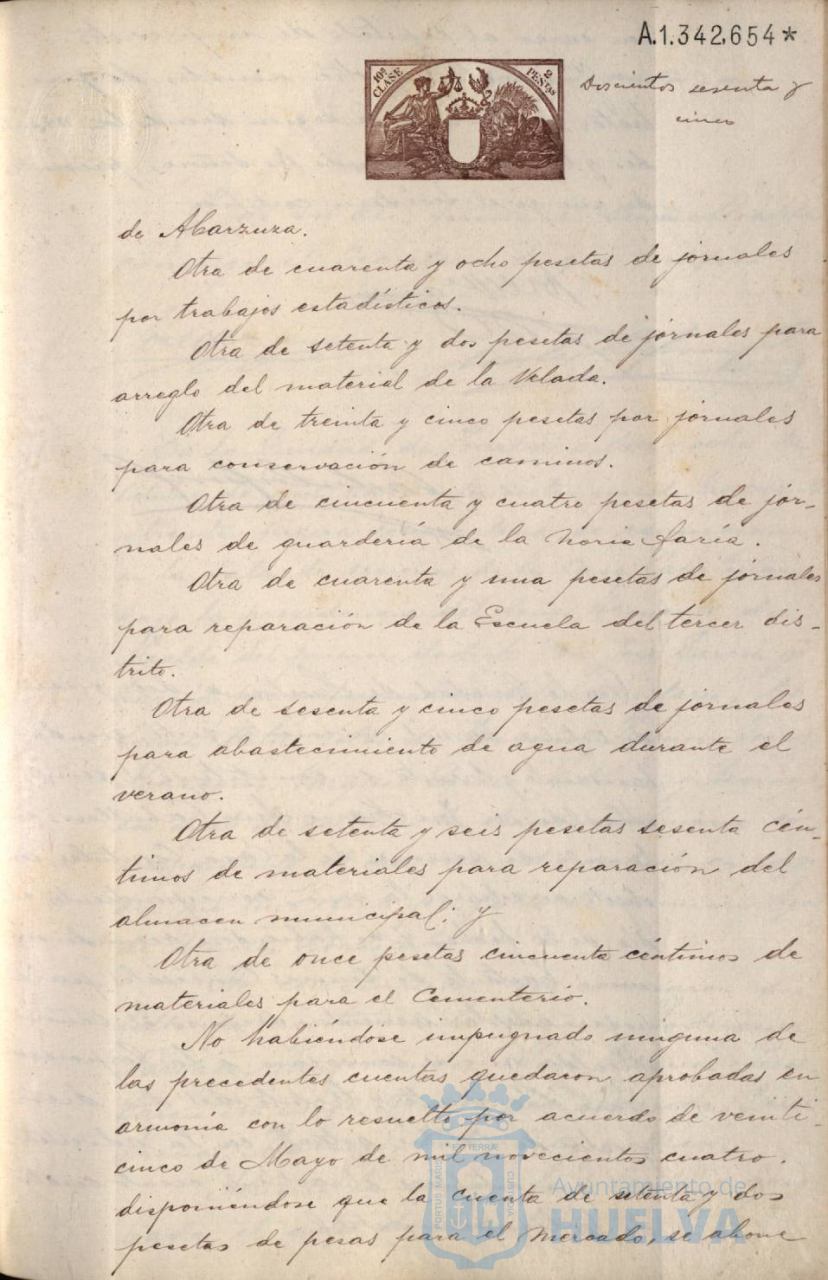 A.1.342.654*
10ª CLASE
2 PESETAS
Doscientos sesenta y
cinco
de Abarzuza.
Otra de cuarenta y ocho pesetas de jornales
por trabajos estadísticos.
Otra de setenta y dos pesetas de jornales para
arreglo del material de la Velada.
Otra de treinta y cinco pesetas por jornales
para conservación de caminos.
Otra de cincuenta y cuatro pesetas de jor-
nales de guardería de la Noria
Otra de cuarenta y una pesetas de jornales
para reparación de la Escuela del tercer dis-
trito.
Otra de sesenta y cinco pesetas de jornales
para abastecimiento de agua durante el
verano.
Otra de setenta y seis pesetas sesenta cén-
timos de materiales para reparación del
almacen municipal; y
Otra de once pesetas cincuenta céntimos de
materiales para el Cementerio.
No habiéndose impugnado ninguna de
las precedentes cuentas quedaron aprobadas en
armonía con lo resuelto por acuerdo de veinti-
cinco de Mayo de mil novecientos cuatro.
disponiéndose que la cuenta de setenta y dos
pesetas de pesas para el Mercado, se abone
PORTUS MARIS ET TERRÆ CUSTODIA
Ayuntamiento de
HUELVA